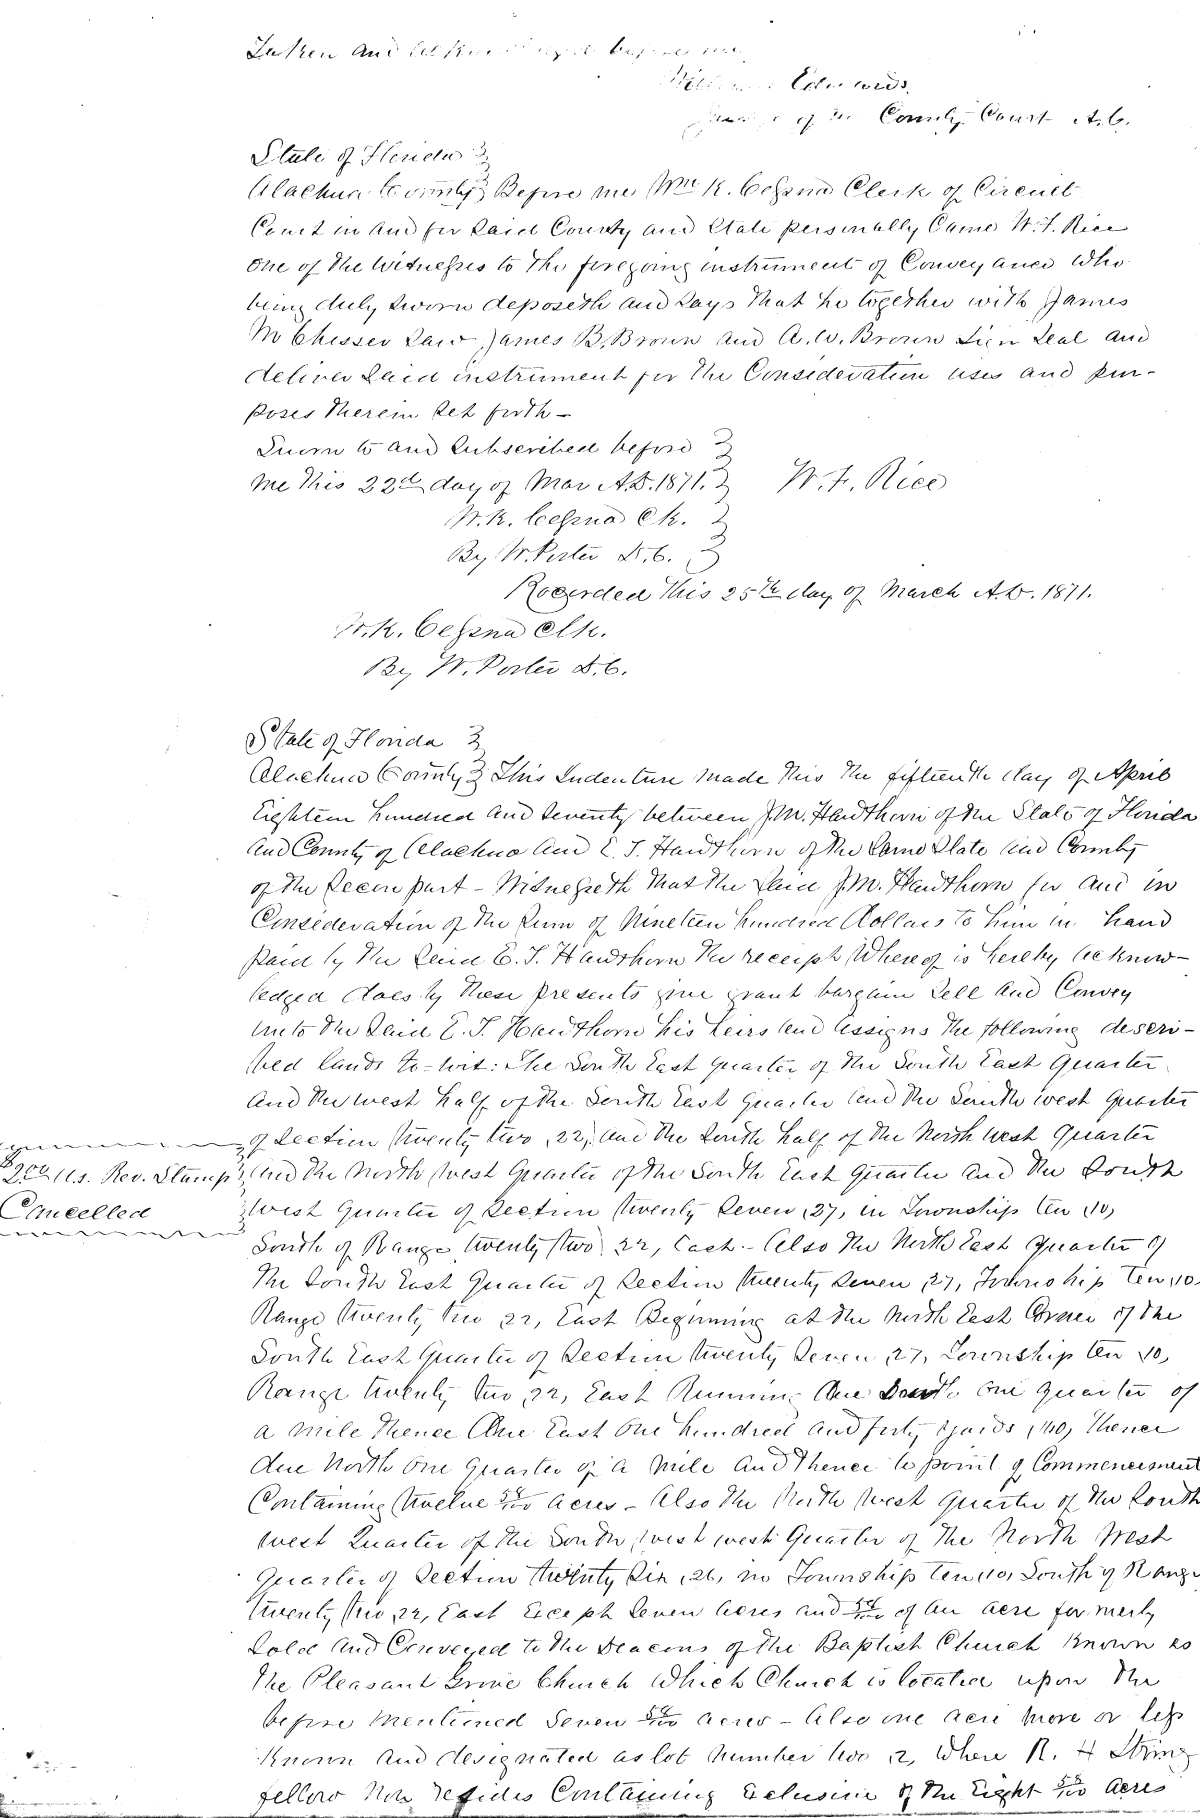 Taken and before me
Edwards.
of County Court A.C.
State of Florida }
Alachua County } Before me Wm K. Cessna Clerk of Circuit
Court in and for said County and State personally came W. F. Rice
one of the witnesses to the foregoing instrument of Conveyance who
being duly sworn deposeth and says that he together with James
McChesser saw James B. Brown and A. W. Brown sign seal and
deliver said instrument for the Consideration uses and pur-
poses therein set forth –
Sworn to and subscribed before }
me this 22d day of Mar A.D. 1871. } W. F. Rice
W. K. Cessna Ck. }
By W. Porter D.C. }
Recorded this 25th day of March A.D. 1871.
W. K. Cessna Clk.
By W. Porter D.C.
State of Florida }
Alachua County } This Indenture made this the fifteenth day of April
Eighteen hundred and seventy between J.M. Hawthorn of the State of Florida
and County of Alachua and E. T. Hawthorn of the same State and County
of the Secon part – Witnesseth that the said J.M. Hawthorn for and in
Consideration of the sum of Nineteen hundred Dollars to him in hand
paid by the said E. T. Hawthorn the receipt whereof is hereby acknow-
ledged does by these presents give grant bargain sell and Convey
unto the said E. T. Hawthorn his heirs and assigns the following descri-
bed lands to-wit: The South East quarter of the South East quarter
and the west half of the South East quarter and the South west quarter
of Section twenty two ,22, and the South half of the North west quarter
$2.00 U.S. Rev. Stamp and the North west quarter of the South East quarter and the South
Cancelled west quarter of Section twenty seven ,27, in Township ten ,10,
South of Range twenty two ,22, East – Also the North East quarter of
the South East quarter of Section twenty seven ,27, Township ten ,10.
Range twenty two ,22, East Beginning at the North East Corner of the
South East quarter of Section twenty seven ,27, Township ten ,10,
Range twenty two ,22, East Running due South one quarter of
a mile thence due East one hundred and forty yards ,140, thence
due North one quarter of a mile and thence to point of Commencement
Containing twelve 58/100 acres – Also the North west quarter of the South
west quarter of the South west west quarter of the North West
quarter of Section twenty six ,26, in Township ten ,10, South of Range
twenty two ,22, East Except seven acres and 58/100 of an acre formerly
sold and Conveyed to the Deacons of the Baptist Church Known as
the Pleasant Grove Church which Church is located upon the
before mentioned seven 58/100 acres – Also one acre more or less
Known and designated as lot number two ,2, where R. H String
fellow now resides Containing exclusive of the Eight 58/100 acres